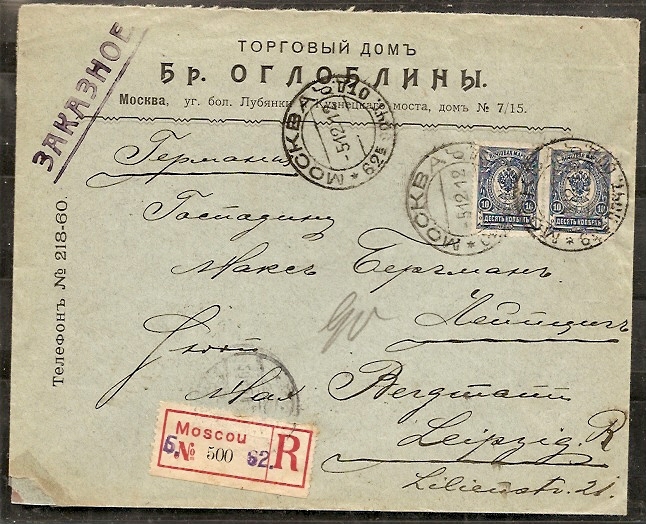 ТОРГОВЫЙ ДОМЪ
Бр. ОГЛОБЛИНЫ.
Москва, уг. бол. Лубянки Кузнецкаго моста, домъ № 7/15.
ЗАКАЗНОЕ
Телефонъ № 218-60.
МОСКВА
5 12 12
МОСКВА
5 12 12
10 10
ДЕСЯТЬ КОПѢЕКЪ
10 10
ДЕСЯТЬ КОПѢЕКЪ
Германія
Господину
Максъ Бергманъ
Лейпцигъ
Max Bergmann
Leipzig. R
Lilienstr. 21.
Moscou
Б. № 500 62. R